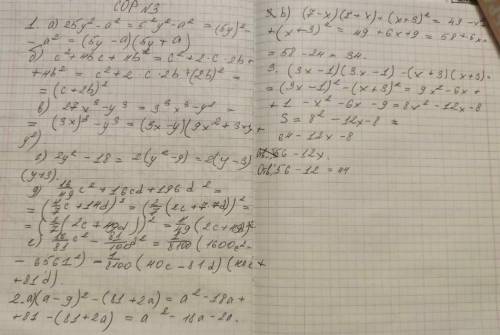 СОР N3
1. а) 25y² - a² = 5²y² - a² = (5y)² -
- a² = (5y - a)(5y + a)
б) c² + 4bc + 4b² = c² + 2·c·2b +
+ 4b² = c² + 2 c·2b + (2b)² =
= (c + 2b)²
в) 27x³ - y³ = 3³x³ - y³ =
= (3x)³ - y³ = (3x - y)(9x² + 3xy +
y²)
2y² - 18 = 2(y² - 9) = 2(y - 3)
(y + 3).
c² + 16cd + 196d² =
= (1/49)
е) 16/81 c² - 81/100 d² = 1/8100 (1600c² -
- 6561²) = 1/8100 (40c - 81d)(40c +
+ 81d).
2. а) (a - 9)² - (81 + 2a) = a² - 18a +
+ 81 - (81 + 2a) = a² - 18a - 2a.
b) (7 - x)(7 + x) + (x + 3)² = 49 - x²
+ (x + 3)² = 49 + 6x + 9 = 58 + 6x =
= 58 - 24 = 34.
3. (3x - 1)(3x - 1) - (x + 3)(x + 3) =
= (3x - 1)² - (x + 3)² = 9x² - 6x +
+ 1 - x² - 6x - 9 = 8x² - 12x - 8
S = 8² - 12x - 8 =
64 - 12x - 8
56 - 12x.
Отв: 56 - 12 = 44